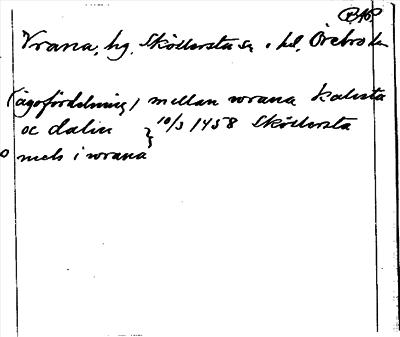 Vrana, hg, Sköllersta sn o hd, Örebro län
(ägofördelning) mellan wrana kalsta
oc dalin } 10/3 1458 Sköllersta
o mels i wrana